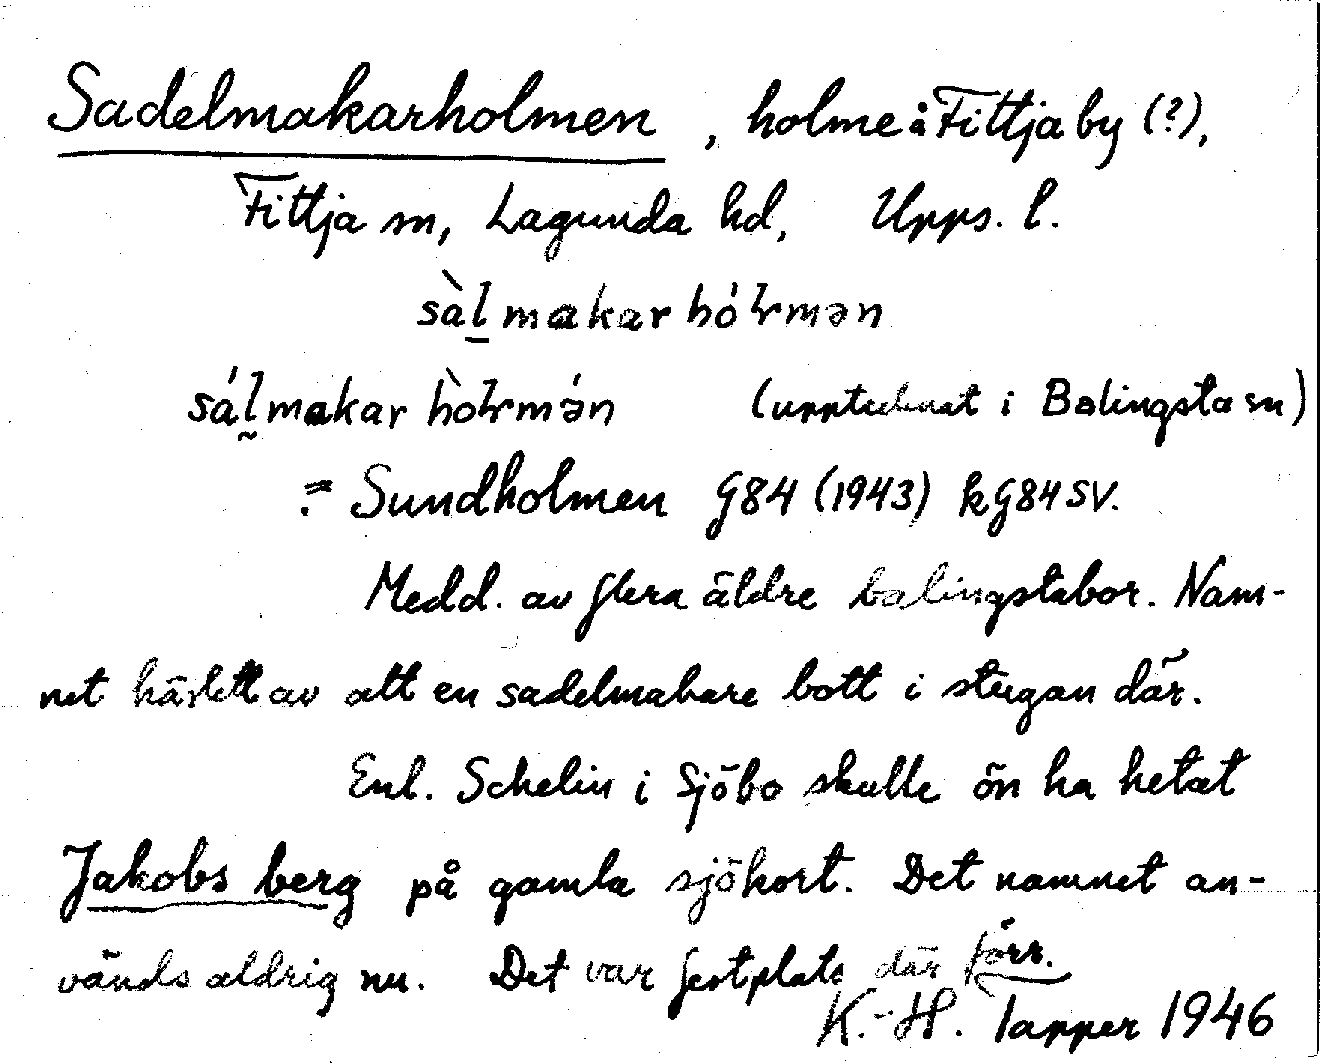 Sadelmakarholmen, holme å Fittja by (?),
Fittja sn, Lagunda hd, Upps. l.
sàl̠makarhó
sál̰makar
(upptecknat i Balingsta sn)
= Sundholmen G84 (1943) kG84SV.
Medd. av flera äldre balingstabor. Nam-
net härlett av att en sadelmakare bott i stugan där.
Enl. Schelin i Sjöbo skulle ön ha hetat
Jakobsberg på gamla sjökort. Det namnet an-
vänds aldrig nu. Det var festplats där förr.
K.-H. Tapper 1946